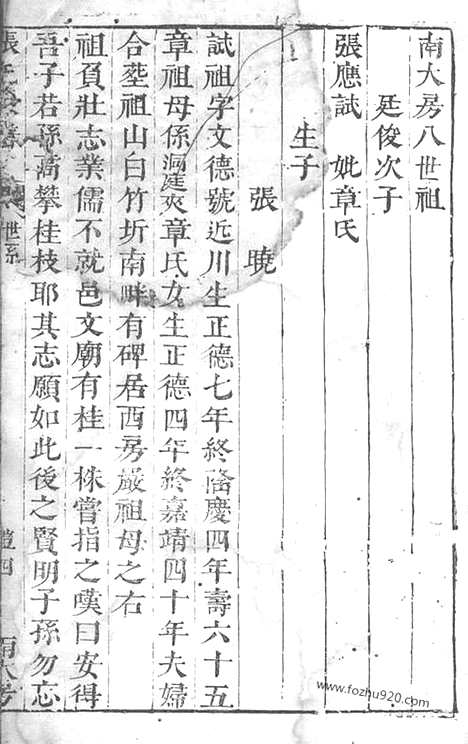 南大房八世祖
廷俊次子
張應試 妣章氏
生子
張曉
試祖字文德號近川生正德七年終隆慶四年壽六十五
章祖母係洞庭夾章氏女生正德四年終嘉靖四十年夫婦
合塟祖山白竹圻南畔有碑居西房嚴祖母之右
祖負壯志業儒不就邑文廟有桂一株嘗指之嘆曰安得
吾子若孫高攀桂枝耶其志願如此後之賢明子孫勿忘
張氏 世系 南大房
www.fozhu920.com